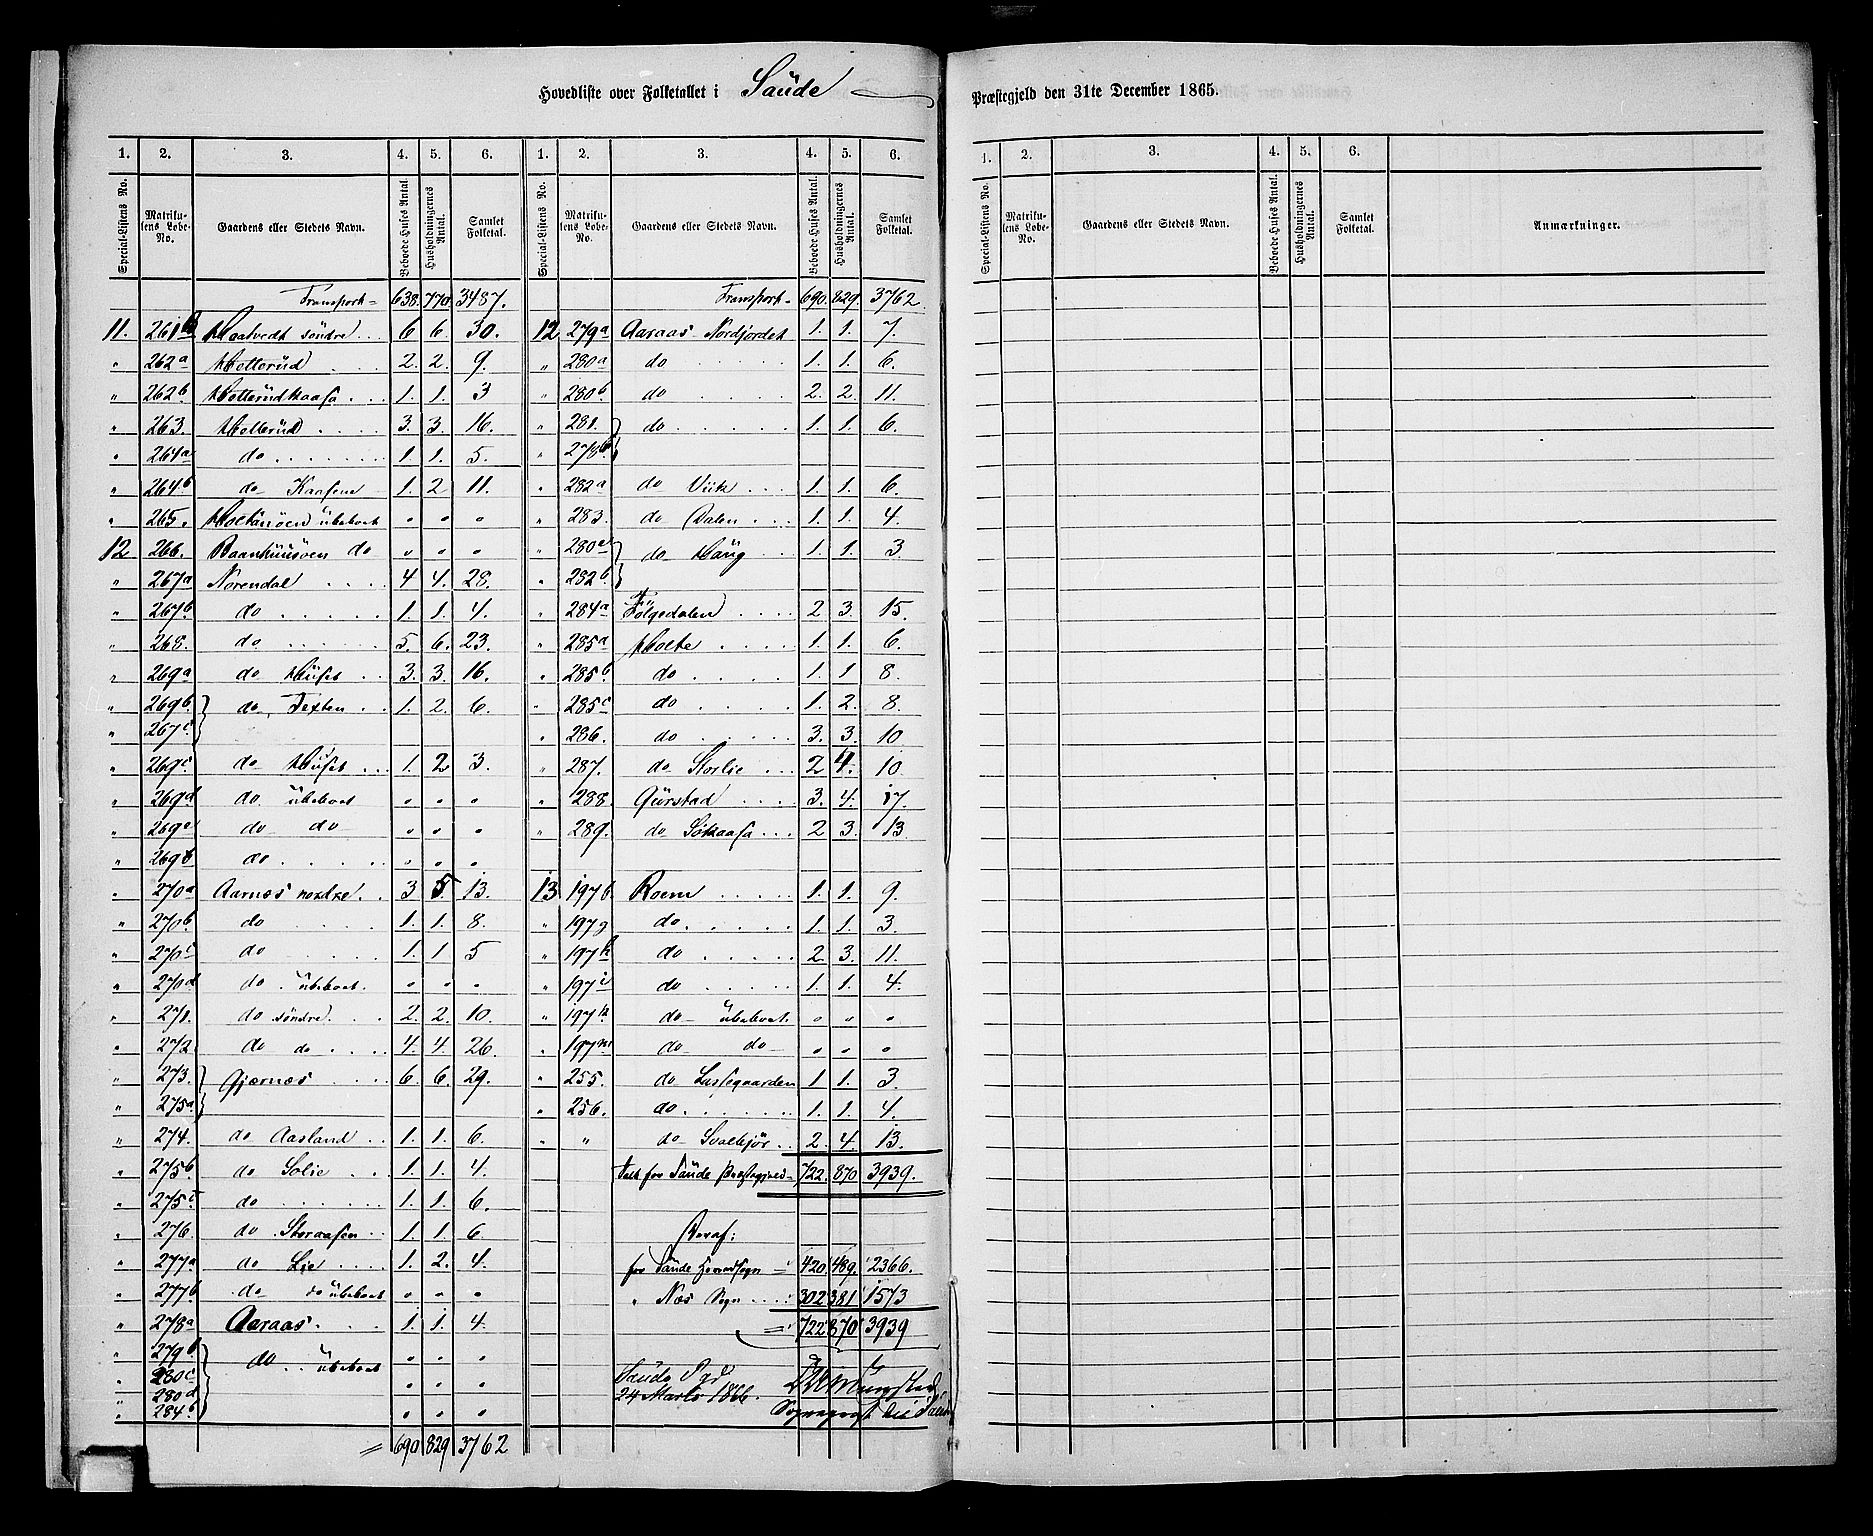 Hovedliste over Folketallet i Saude
Præstegjeld den 31te December 1865.
1. 2. 3. 4. 5. 6. 1. 2. 3. 4. 5. 6.
1. 2. 3. 4. 5. 6.
Special-Listens No. Matrikulens Løbe-No. Gaardens eller Stedets Navn. Beboede Huses Antal. Husholdningernes Antal. Samlet Folketal.
Special-Listens No. Matrikulens Løbe-No. Gaardens eller Stedets Navn. Beboede Huses Antal. Husholdningernes Antal. Samlet Folketal.
Special-Listens No. Matrikulens Løbe-No. Gaardens eller Stedets Navn. Beboede Huses Antal. Husholdningernes Antal. Samlet Folketal. Anmærkninger.
Transport 638. 770. 3487.
11. 261 Haatvedt söndre 6 6. 30.
" 262a Holterüd 2. 2. 9.
" 262b Holterüdkaasa 1. 1. 3
" 263. Holterüd 3. 3. 16.
" 264a do 1. 1. 5.
" 264b do Kaasene 1. 2 11.
" 265. Holtanöen übeboet " " "
12 266. Baanhuusöen do " " "
" 267a Norendal 4 4. 28.
" 267b do 1. 1. 4.
" 268. do 5. 6. 23.
" 269a do Hüset 3. 3. 16.
" 269b. do Texten 1. 2. 6.
" 267c.
" 269c do Hüset 1. 2 3.
" 269d do übeboet " " "
" 269e do do " " "
" 269 do " " "
" 270a Aarnæs nordre 3 5. 13.
" 270b do 1. 1. 8.
" 270c do 1. 1 5
" 270d do übeboet. " " "
" 271. do söndre 2. 2. 10.
" 272 do do 4. 4. 26.
" 273. Gjernæs 6. 6. 29.
" 275a
" 274. do Aasland 1. 1. 6.
" 275b do Solie 1. 1. 4.
" 275c do 1. 1. 6.
" 276. do Storaasen 1. 1. 6
" 277a do Lie 1. 2. 4
" 277b do do übeboet " " "
" 278a Aaraas 1. 1. 4.
" 279b do übeboet " " "
" 280c
" 280d " " "
" 284b " " "
= 690 829 3762
Transport 690. 829. 3762
12 279a Aaraas Nordjordet 1. 1. 7.
" 280a do 1. 1. 6.
" 280b do 2. 2. 11.
" 281. do 1. 1. 6.
" 278b
" 282a do Viik 1. 1. 6
" 283. do Dalen 1. 1. 4.
" 280 do Haüg 1. 1. 3
" 282b.
" 284a Følgedalen 2 3. 15.
" 285a Holte 1. 1. 6.
" 285b do 1. 1 8.
" 285c do 1. 2. 8.
" 286. do 3. 3. 10
" 287. do Storlie 2 4. 10.
" 288. Gürstad 3. 4. 17.
" 289. do Sökaasa 2 3. 13
13 197f Roem 1. 1. 9.
" 197g do 1. 1. 3.
" 197h do 2 3. 11.
" 197i do 1. 1. 4.
" 197k do übeboet. " " "
" 197m do do " " "
" 255. do Lussegaarden 1 1. 3
" 256. do 1. 1. 4.
" " do Svalkjör 2. 4. 13.
Talt for Saude Præstegjeld 722. 870 3939.
Heraf:
for Saude Hovedsogn 420 489. 2366.
" Næs Sogn 302 381 1573
= 722 870 3939
Saude Pgd
24 Marts 1866.
Sognepræst til Saude